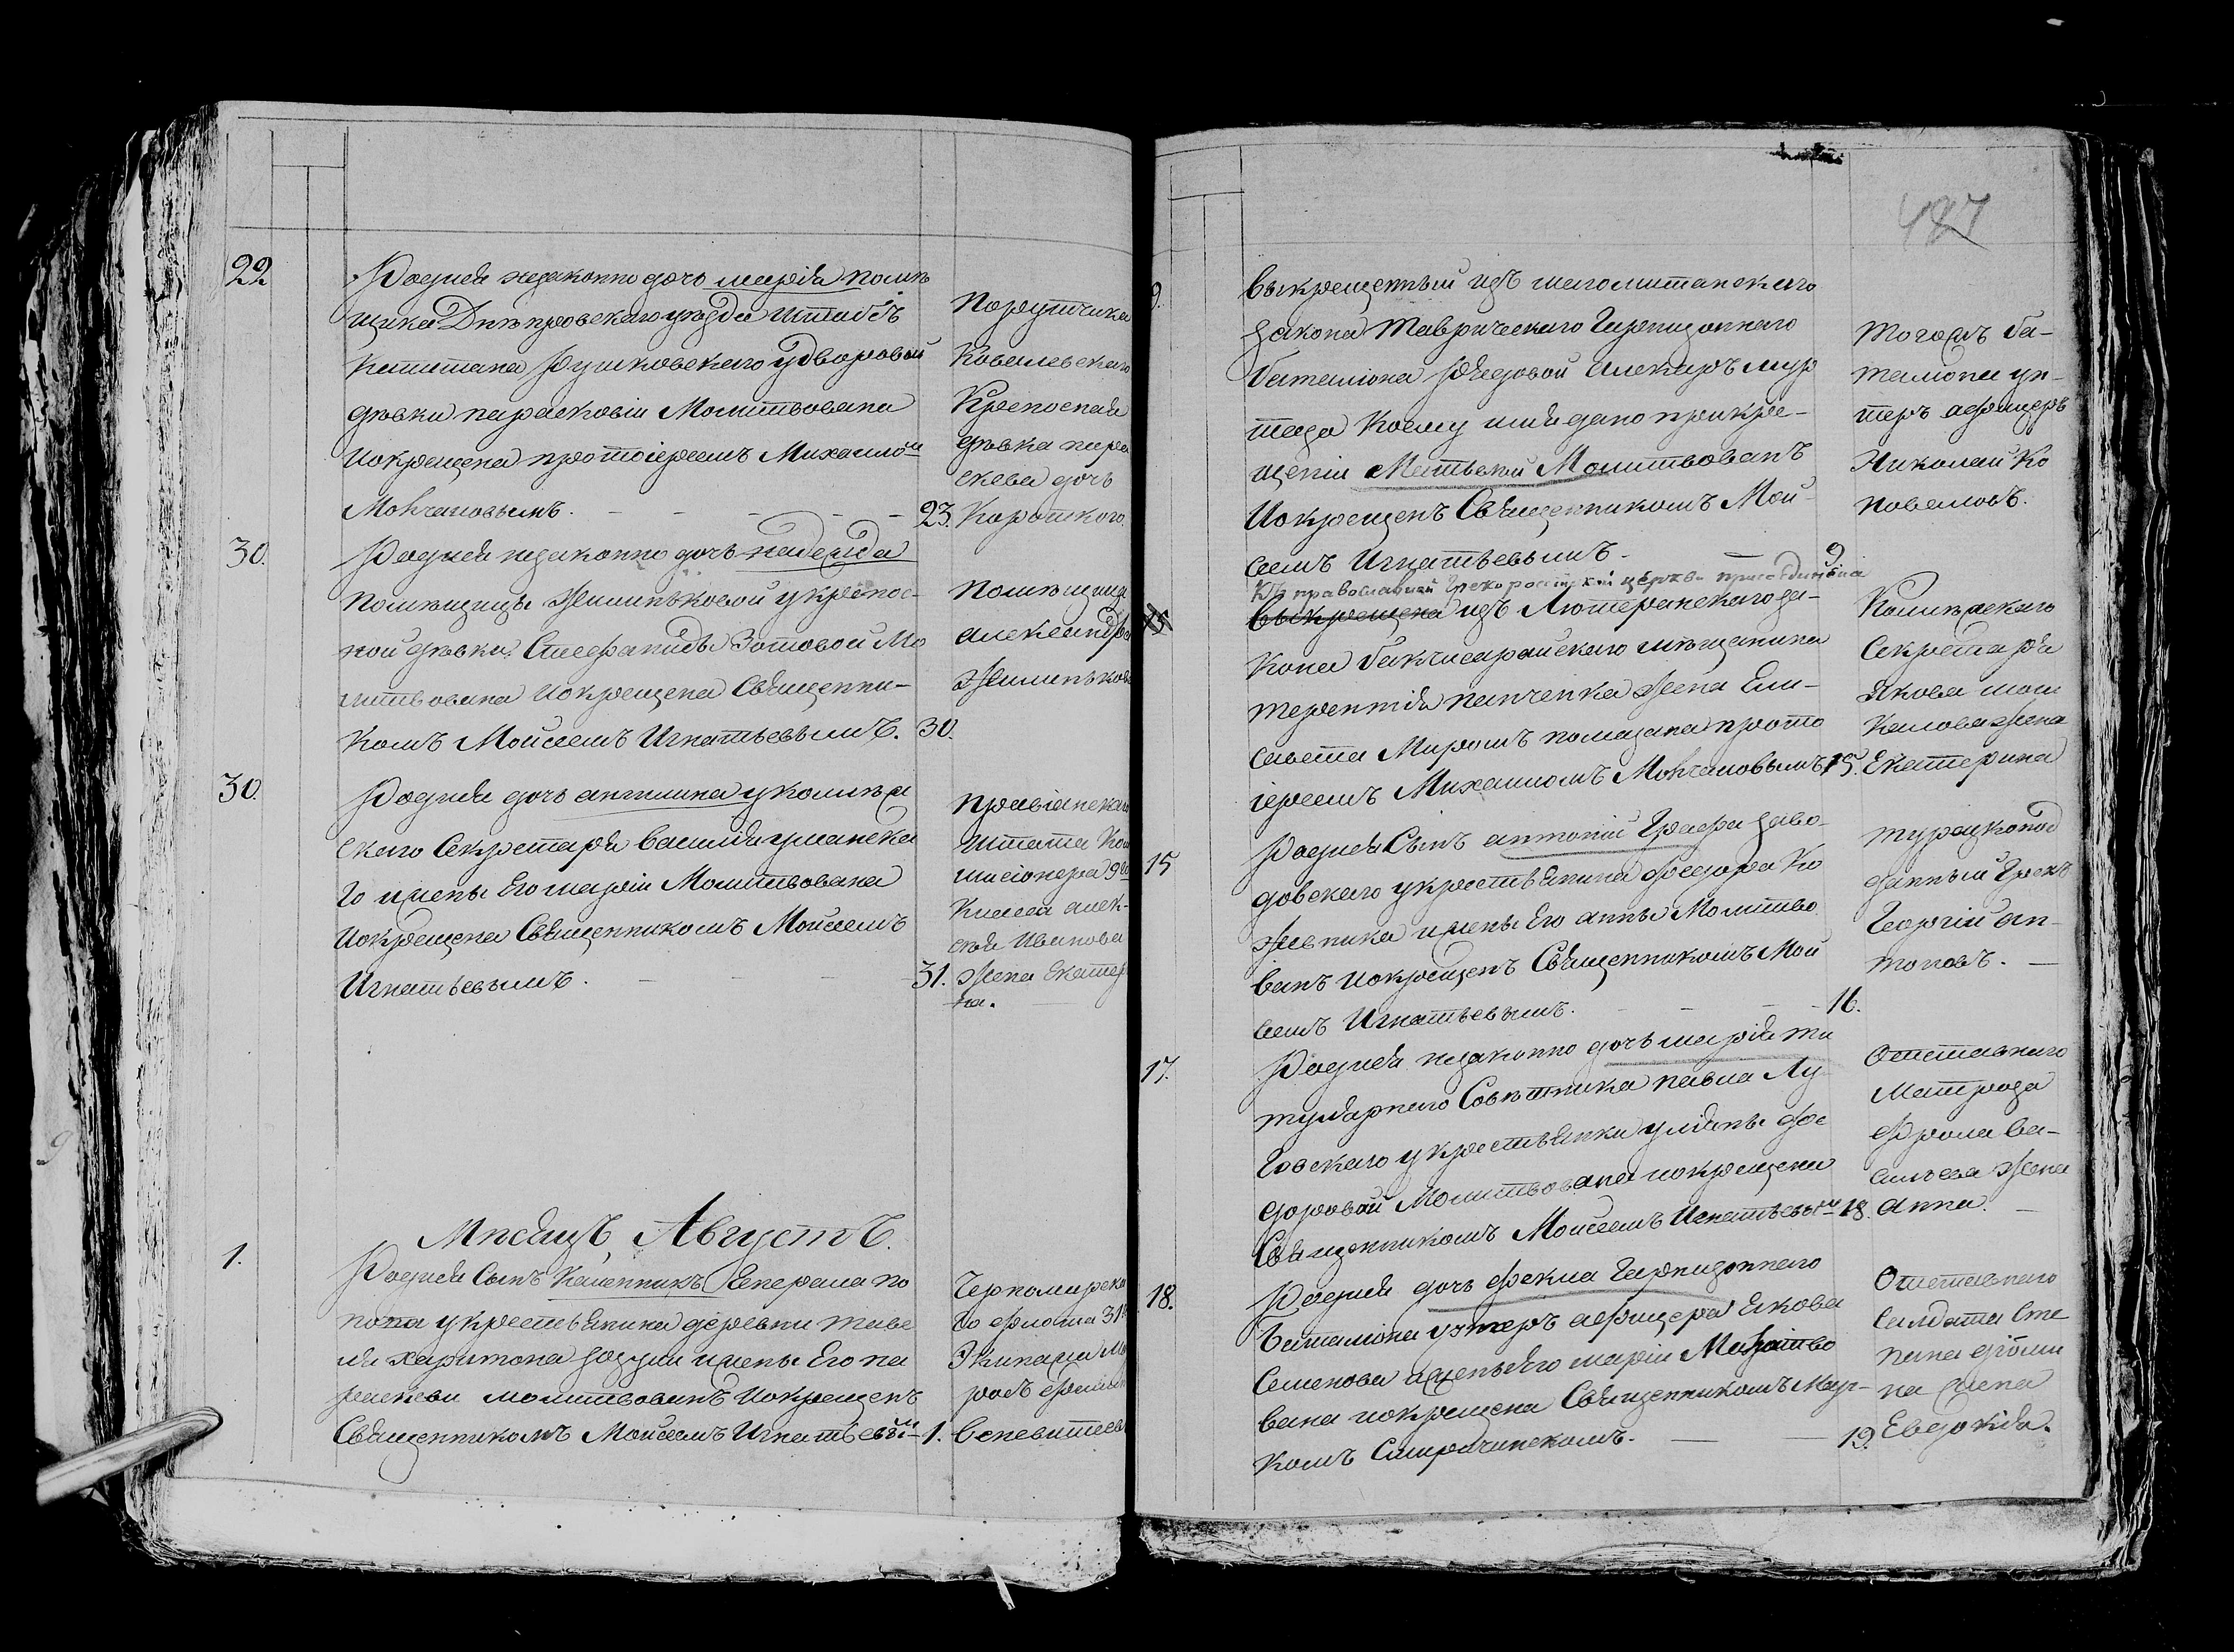 22
Родися незаконно дочь марія помѣ
щика Днѣпровскаго уѣзда Штабсъ
Капитана Рушковскаго у дворовой
дѣвки парасковіи Молитвована
Покрещена протоіереемъ Михаило м
Мончаловымъ. 23.
Порутчика
Ковалевскаго
Крепосная
дѣвка пара
скева дочь
Короткого.
30.
Родися незаконно дочь надежда
помѣщицы Жилиньковой у крѣпос-
ной дѣвки Стефаниды Зотовой Мо
литвована Покрещена Священни-
комъ Моисеемъ Игнатьевымъ. 30.
помѣщица
александра
Жилиньков
30.
Родися дочь ангилина у колежс
скаго Секретаря василія уманска
го и жены Его маріи Молитвована
Покрещена Священникомъ Моисеемъ
Игнатьевымъ. 31.
провіанскаго
Штата Ком
мисіонера 9 го
Класса алек-
сея Иванова
жена Екатер
на.
Мѣсяцъ Августъ.
1.
Родися Сынъ Каленникъ Генерала по
попа у крестьянина деревни таве
ля харитона и жены Его па
раскеви молитвованъ Покрещенъ
Священникомъ Моисеемъ Игнатьевы м 1.
Черноморска
го флота 31
Экипажа Ма
росъ
487
9.
Выкрещенный изъ магомитанскаго
Закона Таврическаго Гарнизоннаго
Баталіона Рядовой
Коему имя дано при кре-
щеніи Матвей Молитвованъ
Покрещенъ Священникомъ Мои-
сеемъ Игнатьевымъ. 9
Тогожъ Ба-
таліона ун-
теръ афицеръ
Николай Ко
новаловъ.
15
Къ православной Греко россійской церкви присоединена
выкрещена изъ Лютеранскаго за-
кона бакчисарайскаго мѣщанина
терентія панченка жена Ели-
савета Миромъ помазана прото
іереемъ Михаиломъ Мончаловымъ 15.
Колежскаго
Секретаря
Якова
жена
Екатерина
15
Родися Сынъ антоній Графа заво-
довскаго у крестьянина федора Ко
жевника и жены Его анны Молитво
ванъ Покрещенъ Священникомъ Мои
сеемъ Игнатьевымъ. 16.
турецкопод
данный Грекъ
Георгій Ан-
тоновъ.
17.
Родися незаконно дочь марія ти
тулярнаго Совѣтника павла Лу
говскаго у крестьянки уліяны фе
доровой Молитвована покрещена
Священникомъ Моисеемъ Игнатьевы м 18.
Отставнаго
Матроза
Фрола Ва-
сильева жена
Анна.
18.
Родися дочь фекла Гарнизоннаго
Баталіона унтеръ афицера Якова
Семенова и жены Его маріи Молитво
вана покрещена Священникомъ Мар-
комъ 19.
Отставнаго
Салдата Сте
пана
на жена
Евдокія.